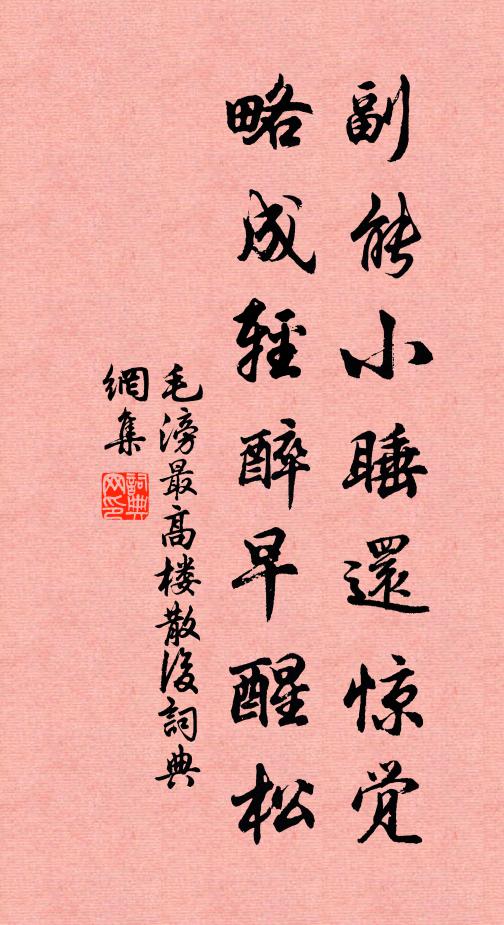 副能小睡還惊觉
略成輕醉早醒松
毛滂最高楼散後詞典
網集
詞典網印